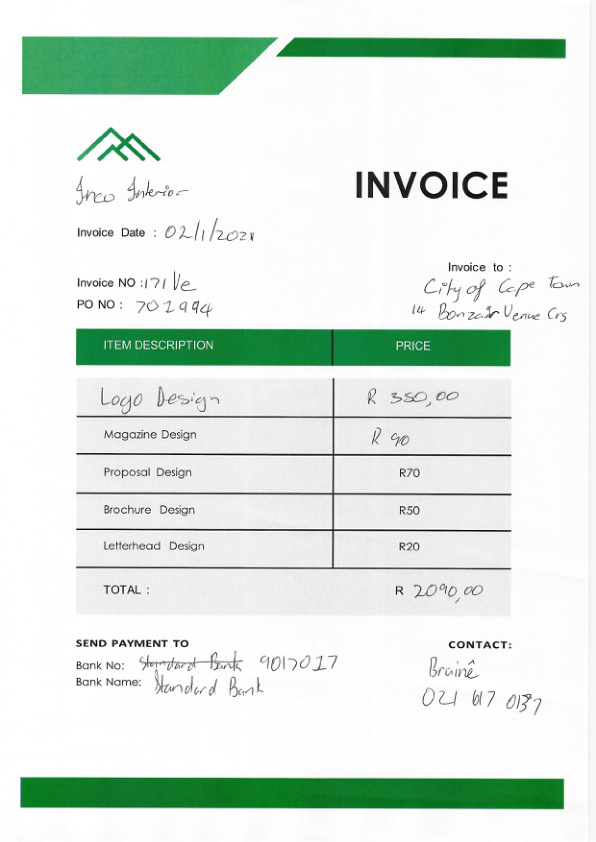 Inco Interior
INVOICE
Invoice Date : 02/1/2021
Invoice to :
City of Cape Town
14 Bonzair Venue Crs
Invoice NO : 171 Ve
PO NO : 701994
ITEM DESCRIPTION PRICE
Logo Design R 350,00
Magazine Design R 90
Proposal Design R70
Brochure Design R50
Letterhead Design R20
TOTAL : R 2090,00
SEND PAYMENT TO
Bank No: Standard Bank 9017017
Bank Name: Standard Bank
CONTACT:
Brainê
021 617 0137